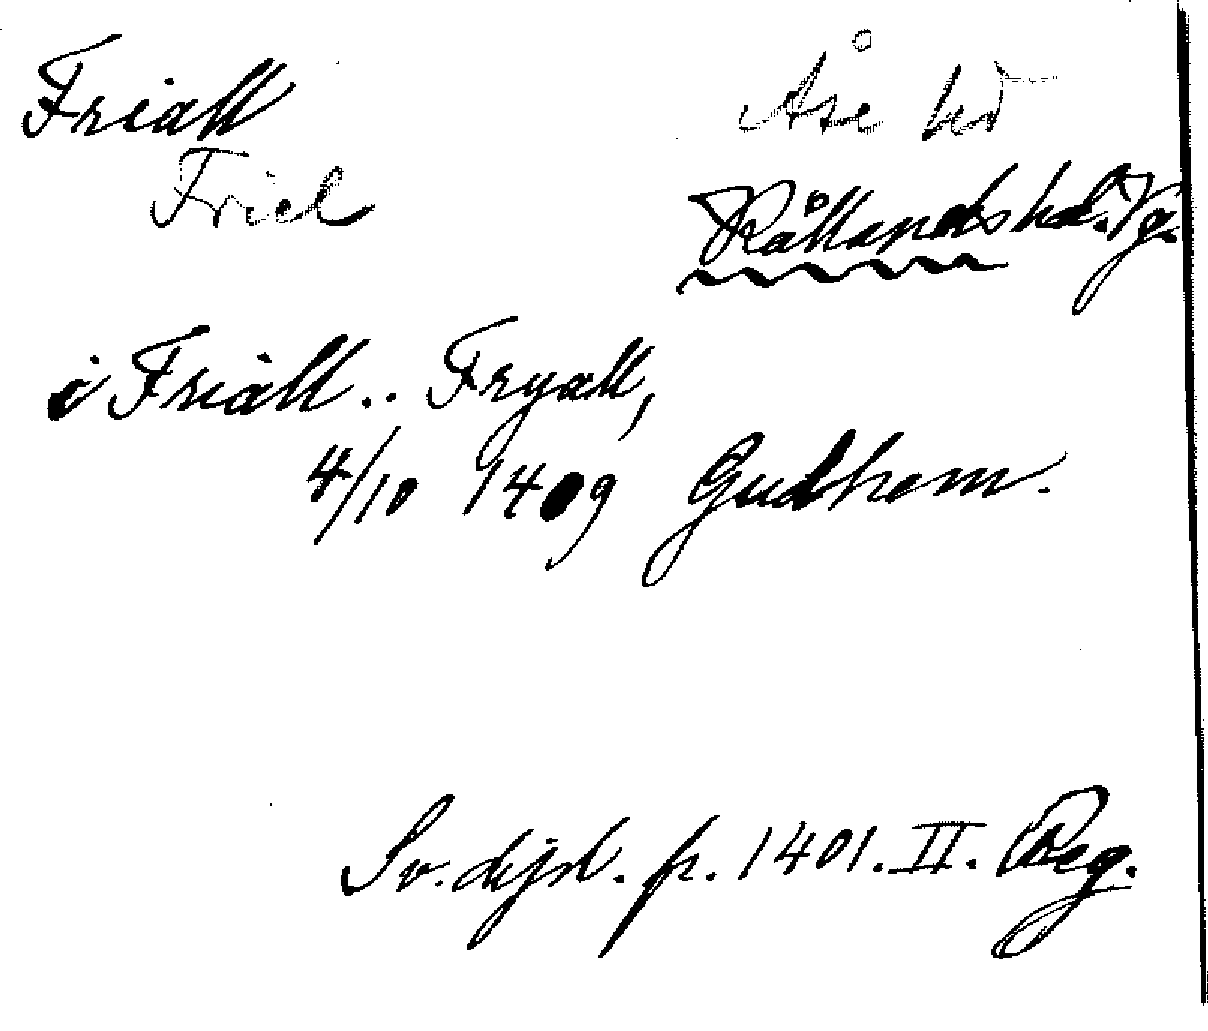 Friall Åse hd
Friel Kållands hd. Vg.
i Friall.. Fryall,
4/10 1409 Gudhem.
Sv. dipl. fr. 1401. II. Reg.